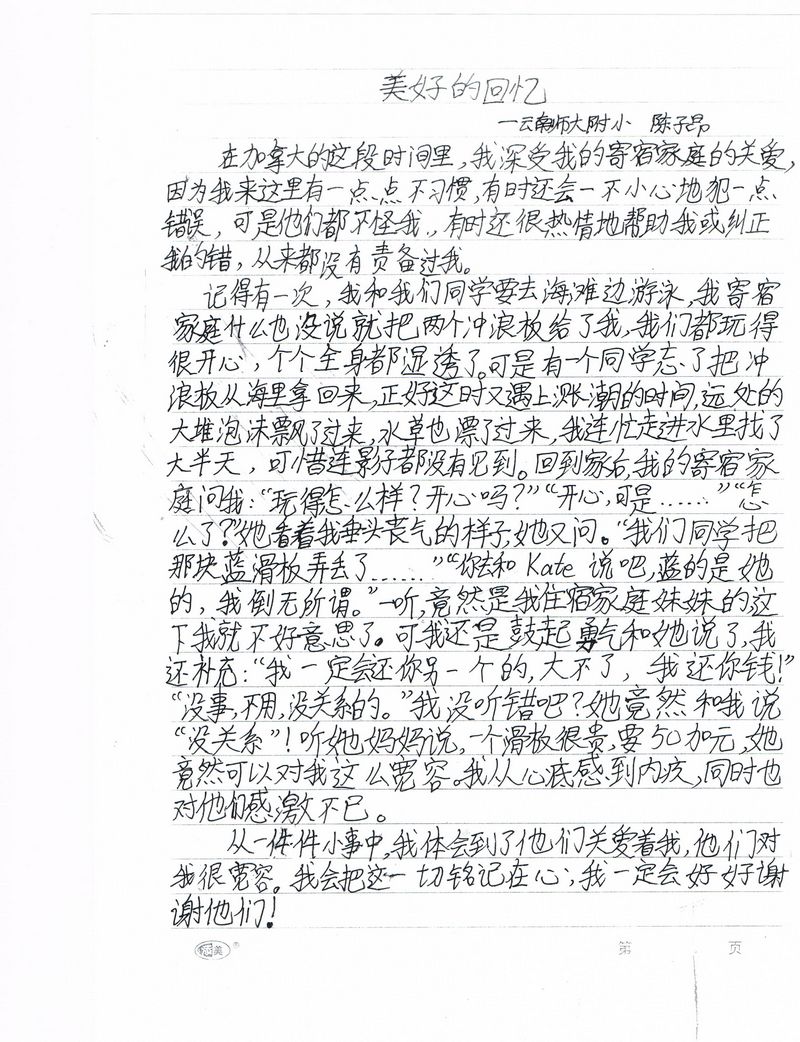 美好的回忆
—云南师大附小 陈子昂
在加拿大的这段时间里，我深受我的寄宿家庭的关爱，
因为我来这里有一点点不习惯，有时还会一不小心地犯一点
错误，可是他们都不怪我，有时还很热情地帮助我或纠正
我的错，从来都没有责备过我。
记得有一次，我和我们同学要去海滩边游泳，我寄宿
家庭什么也没说就把两个冲浪板给了我，我们都玩得
很开心，个个全身都湿透了。可是有一个同学忘了把冲
浪板从海里拿回来，正好这时又遇上涨潮的时间，远处的
大堆泡沫飘了过来，水草也漂了过来，我连忙走进水里找了
大半天，可惜连影子都没有见到。回到家后，我的寄宿家
庭问我：“玩得怎么样？开心吗？”“开心，可是……”“怎
么了？”她看着我垂头丧气的样子，她又问。“我们同学把
那块蓝滑板弄丢了……”“你去和 Kate 说吧，蓝的是她
的，我倒无所谓。”一听，竟然是我住宿家庭妹妹的这
下我就不好意思了。可我还是鼓起勇气和她说了，我
还补充：“我一定会还你另一个的，大不了，我还你钱！”
“没事，不用，没关系的。”我没听错吧？她竟然和我说
“没关系”！听她妈妈说，一个滑板很贵，要50加元，她
竟然可以对我这么宽容。我从心底感到内疚，同时也
对他们感激不已。
从一件件小事中，我体会到了他们关爱着我，他们对
我很宽容。我会把这一切铭记在心，我一定会好好谢
谢他们！
第 页